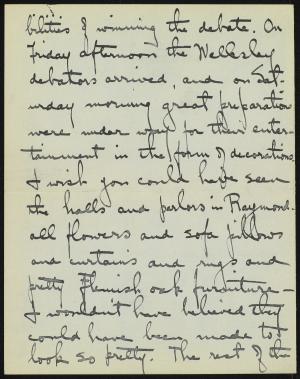 bilities of winning the debate. On
Friday afternoon the Wellesley
debators arrived, and on Sat-
urday morning great preparation
were under way for their enter-
tainment in the form of decorations.
I wish you could have seen
the halls and parlors in Raymond-
all flowers and sofa pillows
and curtains and rugs and
pretty Flemish oak furniture-
I wouldn't have believed they
could have been made to
look so pretty. The rest of the